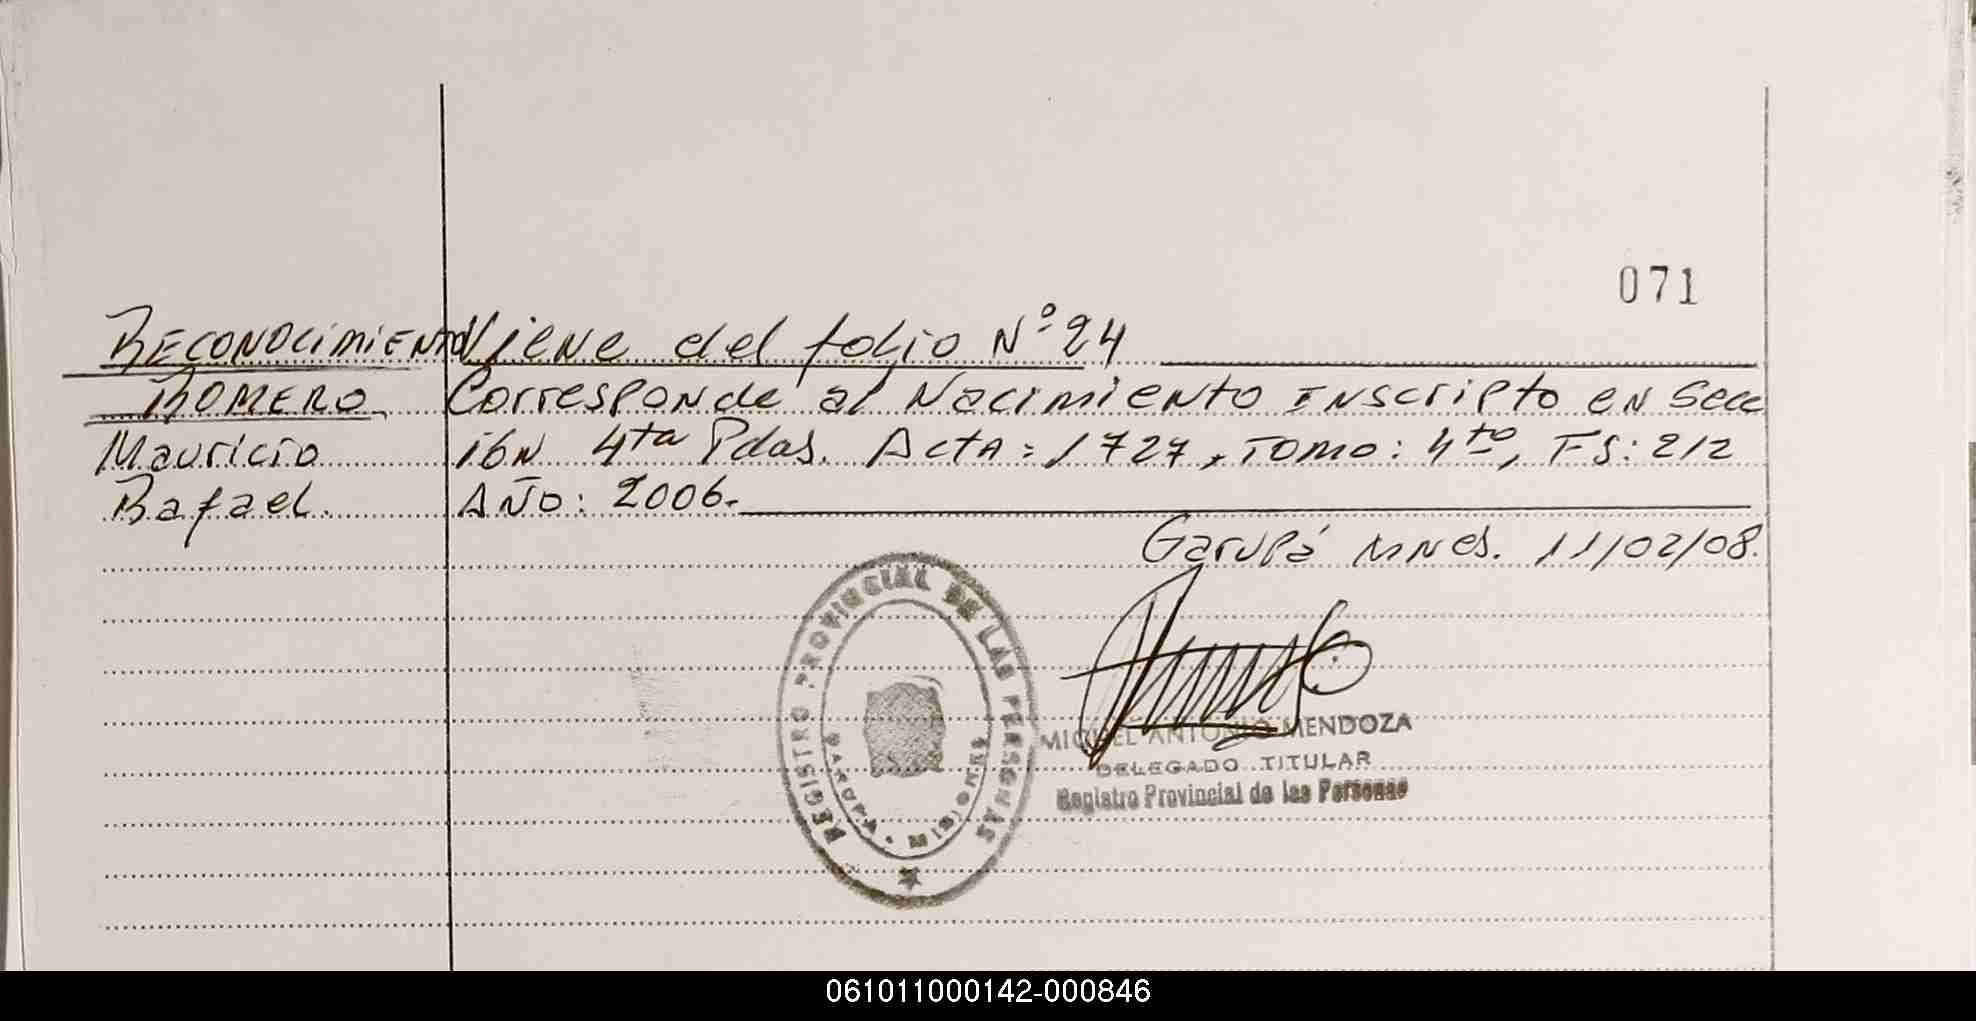 071
RECONOCIMIENTO Viene del folio Nº 24
ROMERO Corresponde al Nacimiento INscripto eN Secc
Mauricio ióN 4ta Pdas. ActA: 1727, TOMO: 4to, FS: 212
Rafael. AÑO: 2006.
Garupá MNes. 11/02/08.
REGISTRO PROVINCIAL DE LAS PERSONAS
GARUPA - MISIONES
MIGUEL ANTONIO MENDOZA
DELEGADO TITULAR
Registro Provincial de las Personas
061011000142-000846